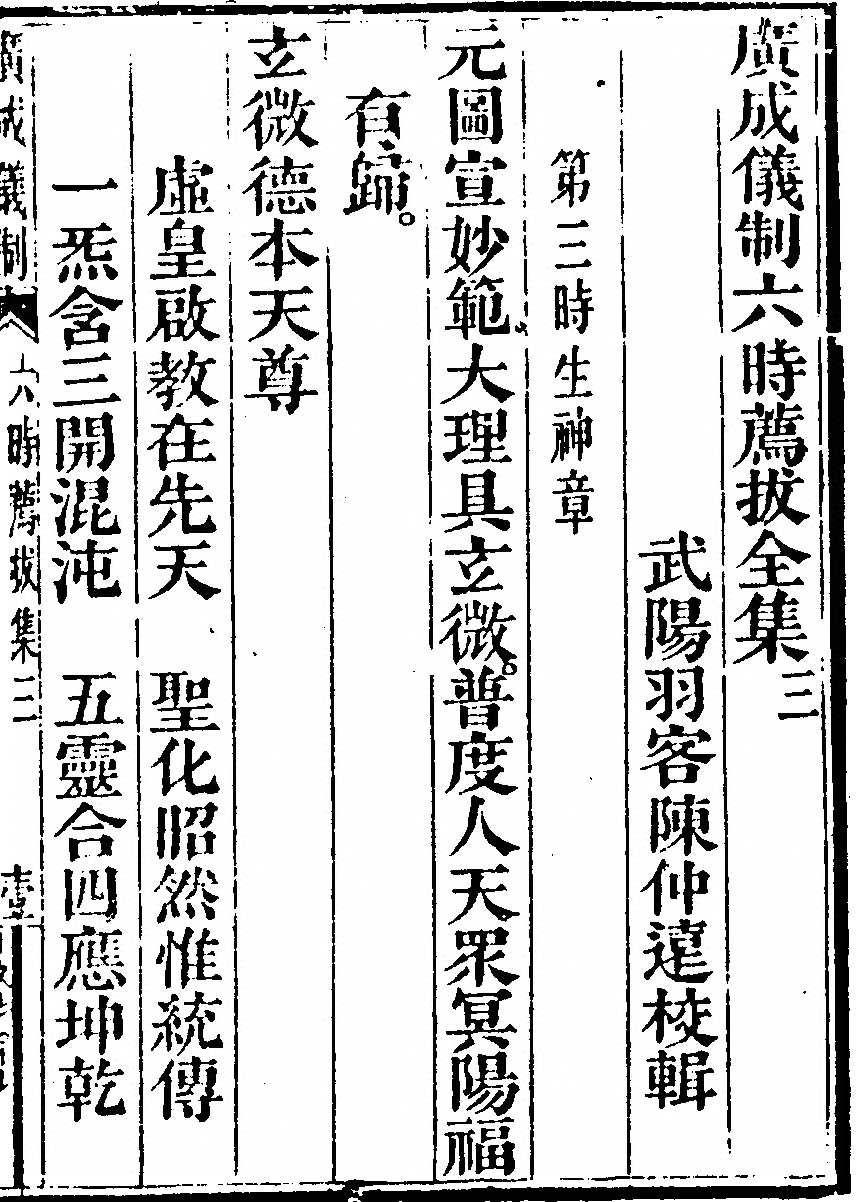 廣成儀制六時薦拔全集三
武陽羽客陳仲遠校輯
第三時生神章
元圖宣妙範、大理具玄微。普度人天眾冥陽福
有歸。
玄微德本天尊
虛皇啟教在先天　聖化昭然惟統傳
一炁含三開混沌　五靈合四應坤乾
廣成儀制　六時薦拔集三　壹